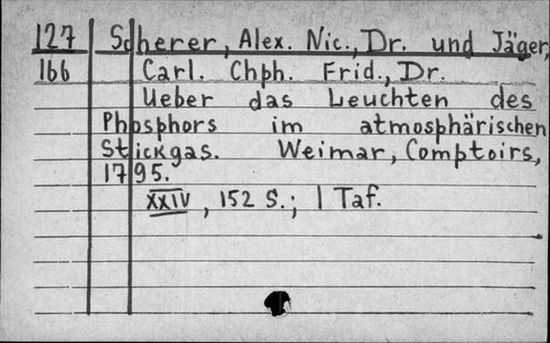 127 Scherer, Alex. Nic., Dr. und Jäger,
166 Carl. Chph. Frid., Dr.
Ueber das Leuchten des
Phosphors im atmosphärischen
Stickgas. Weimar, Comptoirs,
1795.
XXIV, 152 S.; 1 Taf.